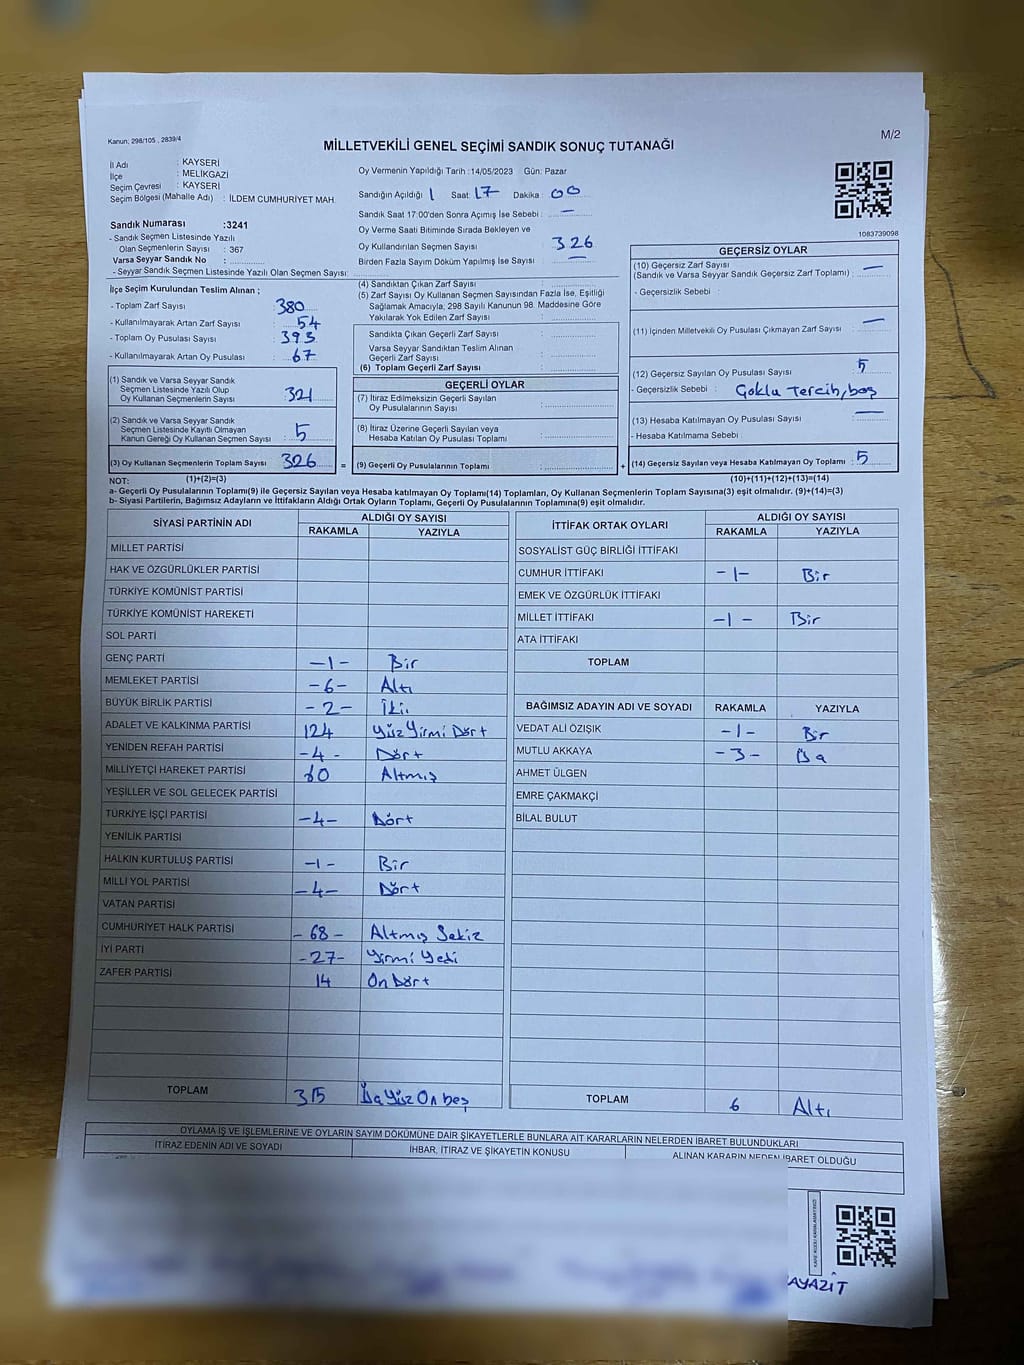 Kanun; 298/105 , 2839/4
M/2
MİLLETVEKİLİ GENEL SEÇİMİ SANDIK SONUÇ TUTANAĞI
İl Adı : KAYSERİ
İlçe : MELİKGAZİ
Seçim Çevresi : KAYSERİ
Seçim Bölgesi (Mahalle Adı) : İLDEM CUMHURİYET MAH.
Sandık Numarası :3241
- Sandık Seçmen Listesinde Yazılı
Olan Seçmenlerin Sayısı : 367
Varsa Seyyar Sandık No :
- Seyyar Sandık Seçmen Listesinde Yazılı Olan Seçmen Sayısı:
Oy Vermenin Yapıldığı Tarih :14/05/2023 Gün: Pazar
Sandığın Açıldığı Saat: 17 Dakika : 00
Sandık Saat 17:00'den Sonra Açımış İse Sebebi : —
Oy Verme Saati Bitiminde Sırada Bekleyen ve
Oy Kullandırılan Seçmen Sayısı : 326
Birden Fazla Sayım Döküm Yapılmış İse Sayısı : —
1083739098
İlçe Seçim Kurulundan Teslim Alınan ;
- Toplam Zarf Sayısı : 380
- Kullanılmayarak Artan Zarf Sayısı : 54
- Toplam Oy Pusulası Sayısı : 393
- Kullanılmayarak Artan Oy Pusulası : 67
(1) Sandık ve Varsa Seyyar Sandık
Seçmen Listesinde Yazılı Olup
Oy Kullanan Seçmenlerin Sayısı : 321
(2) Sandık ve Varsa Seyyar Sandık
Seçmen Listesinde Kayıtlı Olmayan
Kanun Gereği Oy Kullanan Seçmen Sayısı : 5
(3) Oy Kullanan Seçmenlerin Toplam Sayısı : 326
(4) Sandıktan Çıkan Zarf Sayısı :
(5) Zarf Sayısı Oy Kullanan Seçmen Sayısından Fazla İse, Eşitliği
Sağlamak Amacıyla; 298 Sayılı Kanunun 98. Maddesine Göre
Yakılarak Yok Edilen Zarf Sayısı :
Sandıkta Çıkan Geçerli Zarf Sayısı :
Varsa Seyyar Sandıktan Teslim Alınan
Geçerli Zarf Sayısı :
(6) Toplam Geçerli Zarf Sayısı :
GEÇERLİ OYLAR
(7) İtiraz Edilmeksizin Geçerli Sayılan
Oy Pusulalarının Sayısı :
(8) İtiraz Üzerine Geçerli Sayılan veya
Hesaba Katılan Oy Pusulası Toplamı :
= (9) Geçerli Oy Pusulalarının Toplamı : +
GEÇERSİZ OYLAR
(10) Geçersiz Zarf Sayısı
(Sandık ve Varsa Seyyar Sandık Geçersiz Zarf Toplamı) : —
- Geçersizlik Sebebi :
(11) İçinden Milletvekili Oy Pusulası Çıkmayan Zarf Sayısı : —
(12) Geçersiz Sayılan Oy Pusulası Sayısı : 5
- Geçersizlik Sebebi : Çoklu Tercih, boş
(13) Hesaba Katılmayan Oy Pusulası Sayısı : —
- Hesaba Katılmama Sebebi :
(14) Geçersiz Sayılan veya Hesaba Katılmayan Oy Toplamı : 5
NOT: (1)+(2)=(3) (10)+(11)+(12)+(13)=(14)
a- Geçerli Oy Pusulalarının Toplamı(9) ile Geçersiz Sayılan veya Hesaba katılmayan Oy Toplamı(14) Toplamları, Oy Kullanan Seçmenlerin Toplam Sayısına(3) eşit olmalıdır. (9)+(14)=(3)
b- Siyasi Partilerin, Bağımsız Adayların ve İttifakların Aldığı Ortak Oyların Toplamı, Geçerli Oy Pusulalarının Toplamına(9) eşit olmalıdır.
SİYASİ PARTİNİN ADI ALDIĞI OY SAYISI
RAKAMLA YAZIYLA
MİLLET PARTİSİ
HAK VE ÖZGÜRLÜKLER PARTİSİ
TÜRKİYE KOMÜNİST PARTİSİ
TÜRKİYE KOMÜNİST HAREKETİ
SOL PARTİ
GENÇ PARTİ -1- Bir
MEMLEKET PARTİSİ -6- Altı
BÜYÜK BİRLİK PARTİSİ -2- İki
ADALET VE KALKINMA PARTİSİ 124 Yüz Yirmi Dört
YENİDEN REFAH PARTİSİ -4- Dört
MİLLİYETÇİ HAREKET PARTİSİ 60 Altmış
YEŞİLLER VE SOL GELECEK PARTİSİ
TÜRKİYE İŞÇİ PARTİSİ -4- Dört
YENİLİK PARTİSİ
HALKIN KURTULUŞ PARTİSİ -1- Bir
MİLLİ YOL PARTİSİ -4- Dört
VATAN PARTİSİ
CUMHURİYET HALK PARTİSİ -68- Altmış Sekiz
İYİ PARTİ -27- Yirmi Yedi
ZAFER PARTİSİ 14 On Dört
TOPLAM 315 Üç Yüz On beş
İTTİFAK ORTAK OYLARI ALDIĞI OY SAYISI
RAKAMLA YAZIYLA
SOSYALİST GÜÇ BİRLİĞİ İTTİFAKI
CUMHUR İTTİFAKI -1- Bir
EMEK VE ÖZGÜRLÜK İTTİFAKI
MİLLET İTTİFAKI -1- Bir
ATA İTTİFAKI
TOPLAM
BAĞIMSIZ ADAYIN ADI VE SOYADI RAKAMLA YAZIYLA
VEDAT ALİ ÖZIŞIK -1- Bir
MUTLU AKKAYA -3- Üç
AHMET ÜLGEN
EMRE ÇAKMAKÇİ
BİLAL BULUT
TOPLAM 6 Altı
OYLAMA İŞ VE İŞLEMLERİNE VE OYLARIN SAYIM DÖKÜMÜNE DAİR ŞİKAYETLERLE BUNLARA AİT KARARLARIN NELERDEN İBARET BULUNDUKLARI
İTİRAZ EDENİN ADI VE SOYADI İHBAR, İTİRAZ VE ŞİKAYETİN KONUSU ALINAN KARARIN NEDEN İBARET OLDUĞU
AYAZIT